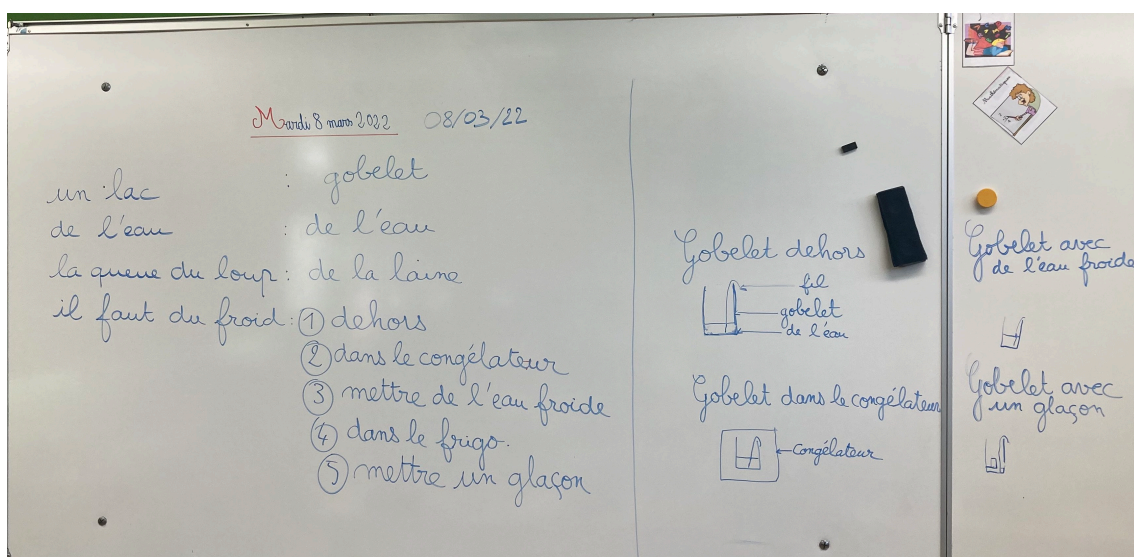 Mardi 8 mars 2022 08/03/22
un lac : gobelet
de l'eau : de l'eau
la queue du loup : de la laine
il faut du froid : ① dehors
② dans le congélateur
③ mettre de l'eau froide
④ dans le frigo.
⑤ mettre un glaçon
Gobelet dehors
fil
gobelet
de l'eau
Gobelet dans le congélateur
congélateur
Gobelet avec
de l'eau froide
Gobelet avec
un glaçon